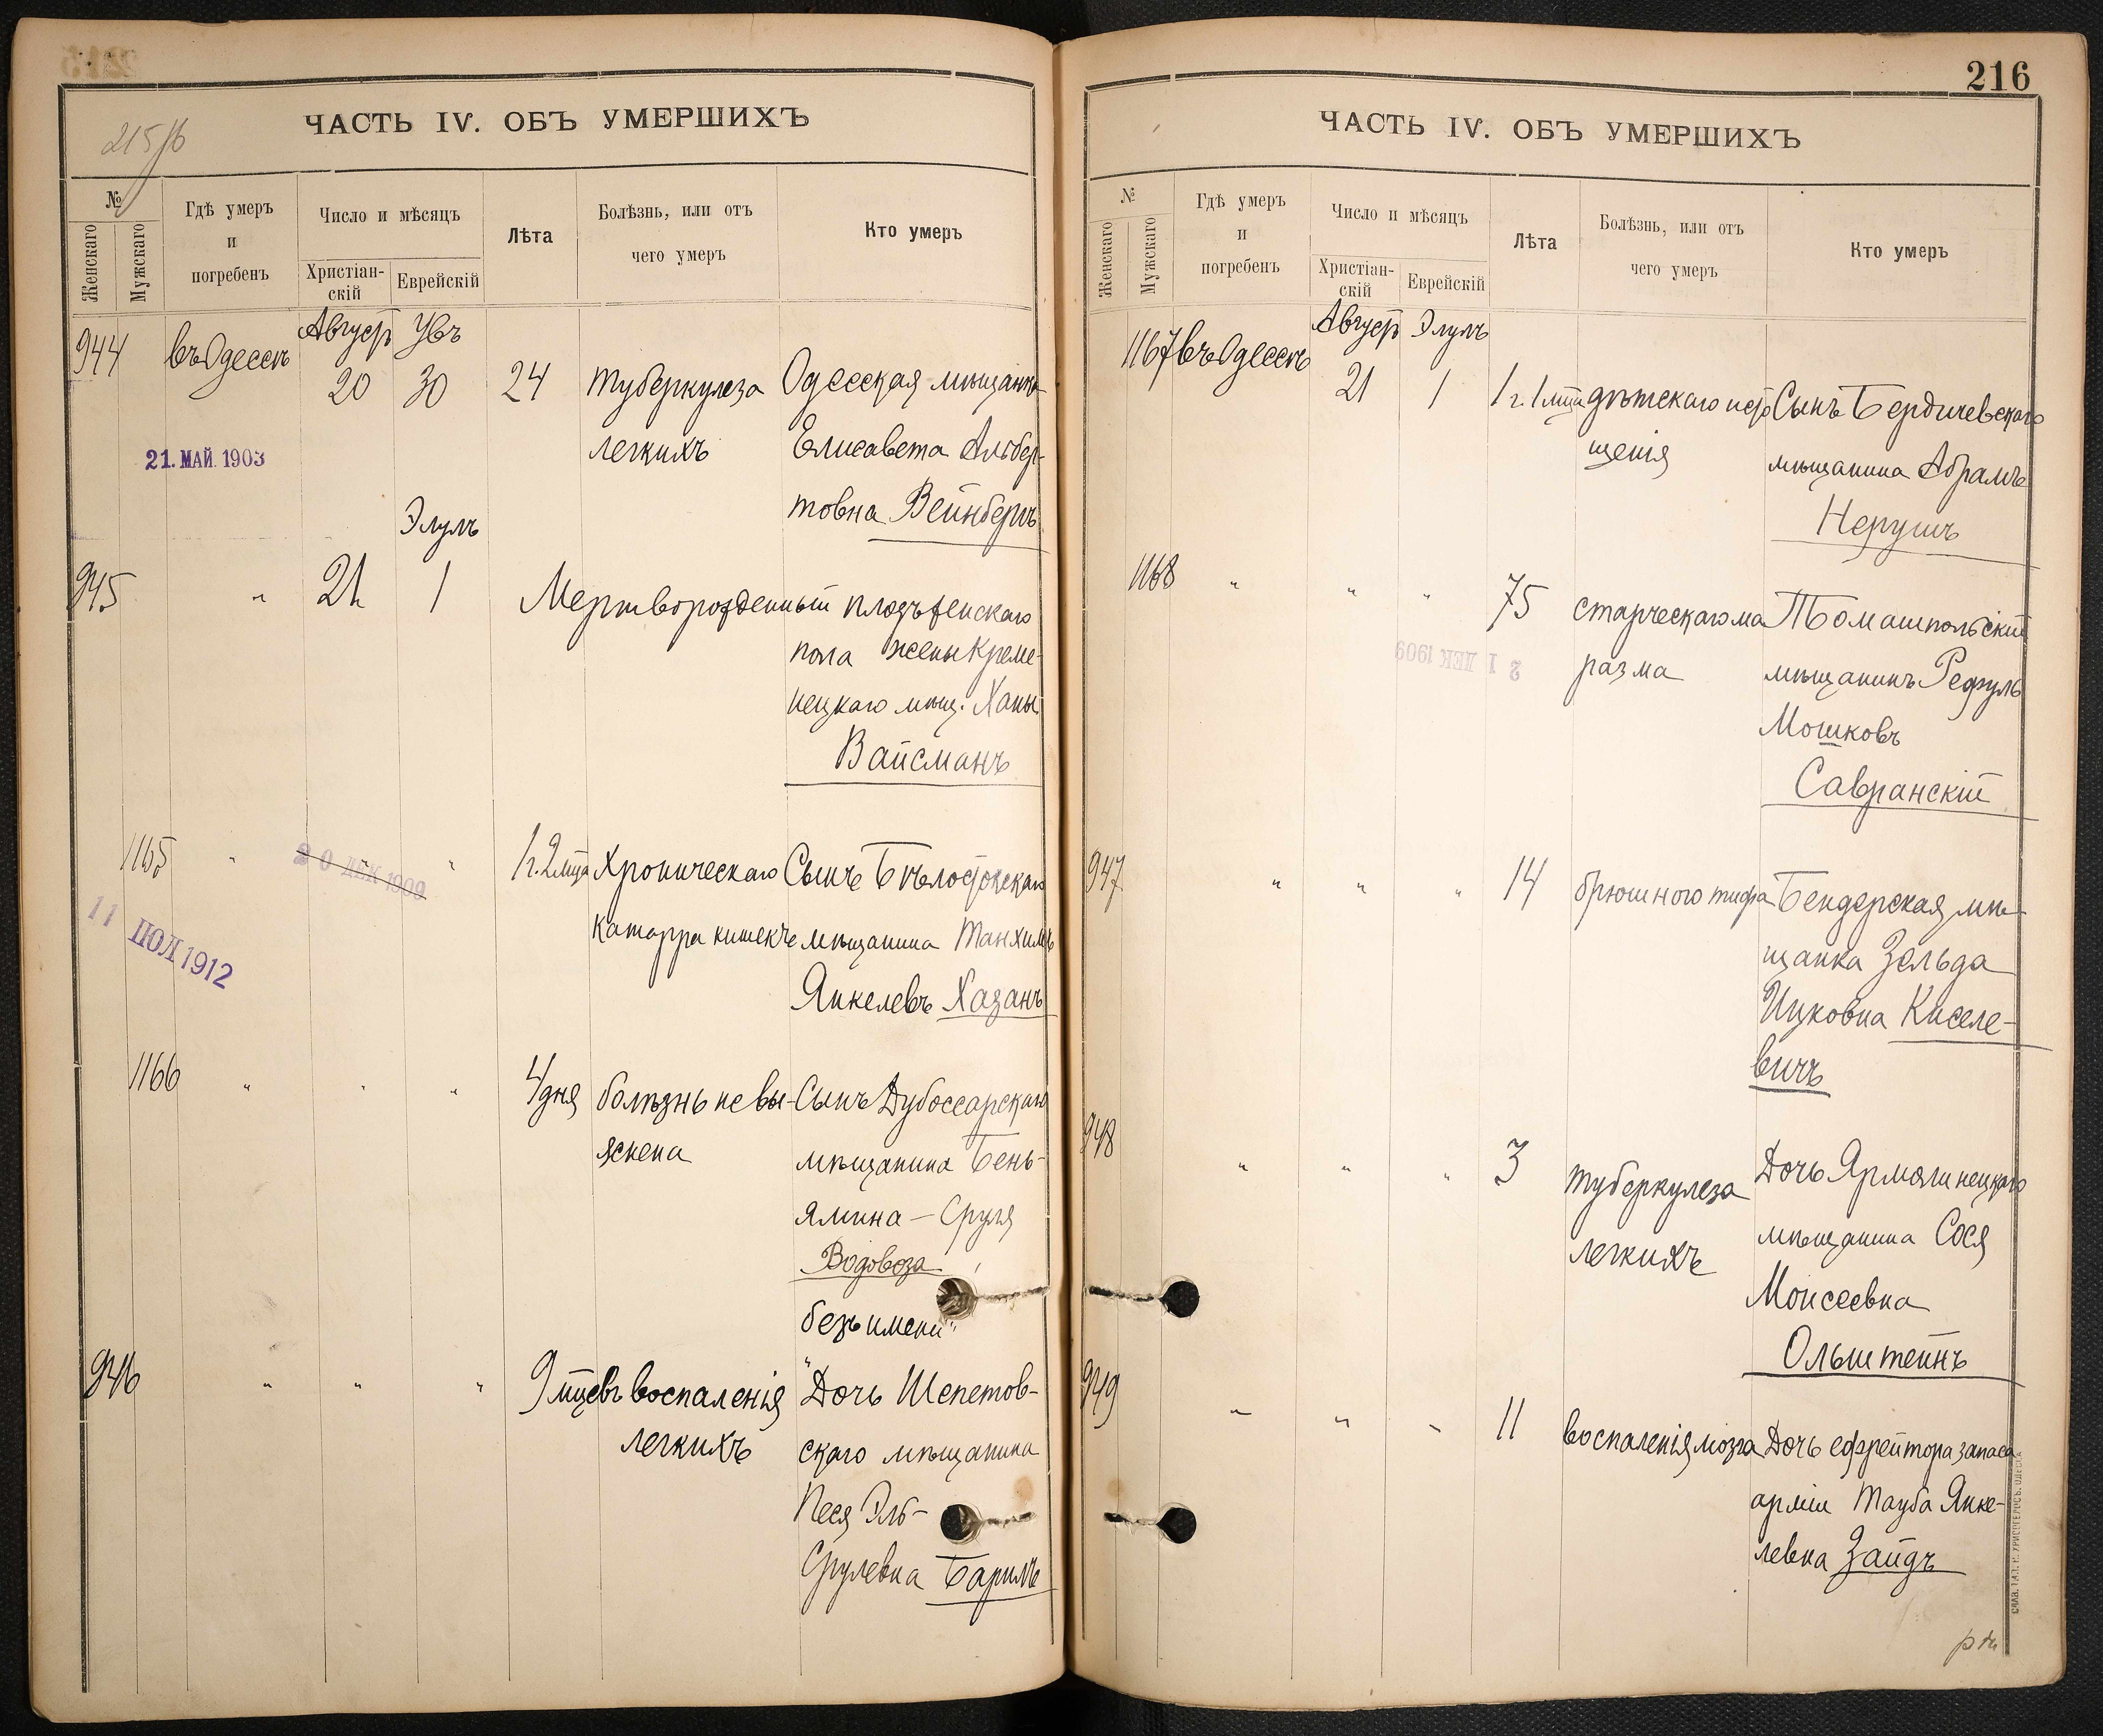 215/б
ЧАСТЬ IV. ОБЪ УМЕРШИХЪ
№
Женскаго
Мужскаго
Гдѣ умеръ
и
погребенъ
Число и мѣсяцъ
Христіан-
скій
Еврейскій
Лѣта
Болѣзнь, или отъ
чего умеръ
Кто умеръ
944 въ Одессѣ Август Увъ
20 30 24 туберкулеза Одесская мѣщанка
легкихъ Елисавета Альбер-
21. МАЙ. 1903
товна Вейнбергъ
Элулъ
945 " 21 1 Мертворожденный плодъ женскаго
пола жены Креме-
нецкаго мѣщ. Ханы
Вайсманъ
1165 " " 1 г. 2 мца Хроническаго Сынъ Бѣлостокскаго
20 ДЕК 1909
катарра кишекъ мѣщанина Танхимъ
11 ІЮЛ 1912
Янкелевъ Хазанъ
1166 " " " 4 дня болѣзнь не вы- Сынъ Дубоссарскаго
яснена мѣщанина Бень-
ямина - Сруля
Водовоза
безъ имени"
946 " " " 9 мцевъ воспаленія "Дочь Шепетов-
легкихъ скаго мѣщанина
Песя Эль-
Срулевна Баримъ
216
ЧАСТЬ IV. ОБЪ УМЕРШИХЪ
№
Женскаго
Мужскаго
Гдѣ умеръ
и
погребенъ
Число и мѣсяцъ
Христіан-
скій
Еврейскій
Лѣта
Болѣзнь, или отъ
чего умеръ
Кто умеръ
1167 въ Одессѣ Август Элулъ
21 1 1 г. 1 мца дѣтскаго исто Сынъ Бердичевскаго
щенія мѣщанина Абрамъ
Нерушъ
1168 " " " 75 старческаго ма Томашпольскій
21 ДЕК 1909
разма мѣщанинъ Рефулъ
Мошковъ
Савранскій
947 " " " 14 брюшного тифа Бендерская мѣ-
щанка Зельда
Ицковна Киселе-
вичъ
948 " " " 3 туберкулеза Дочь Ярмолинецкаго
легкихъ мѣщанина Сося
Моисеевна
Ольштейнъ
949 " " " 11 воспаленія мозга Дочь ефрейтора запаса
арміи Тауба Янке-
левна Зайдъ